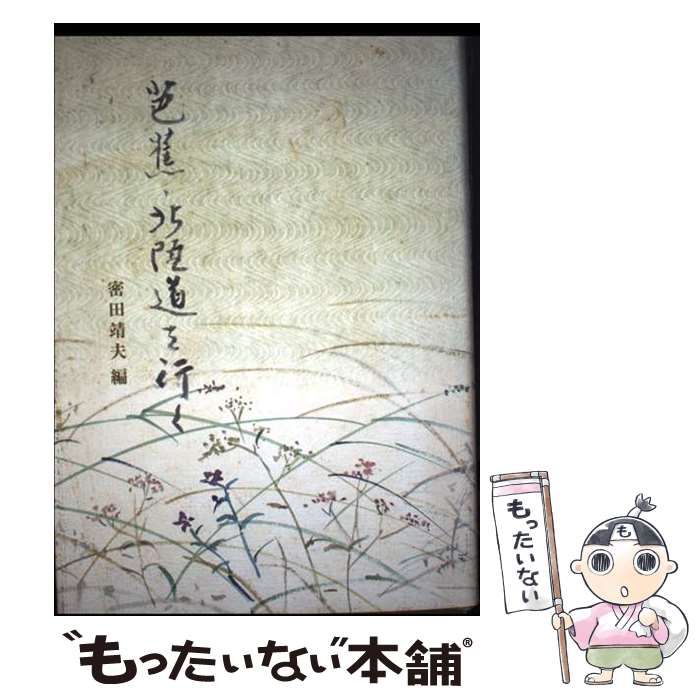 芭蕉・北陸道を行く
密田靖夫 編
もったいない
も
"もったいない"本舗®